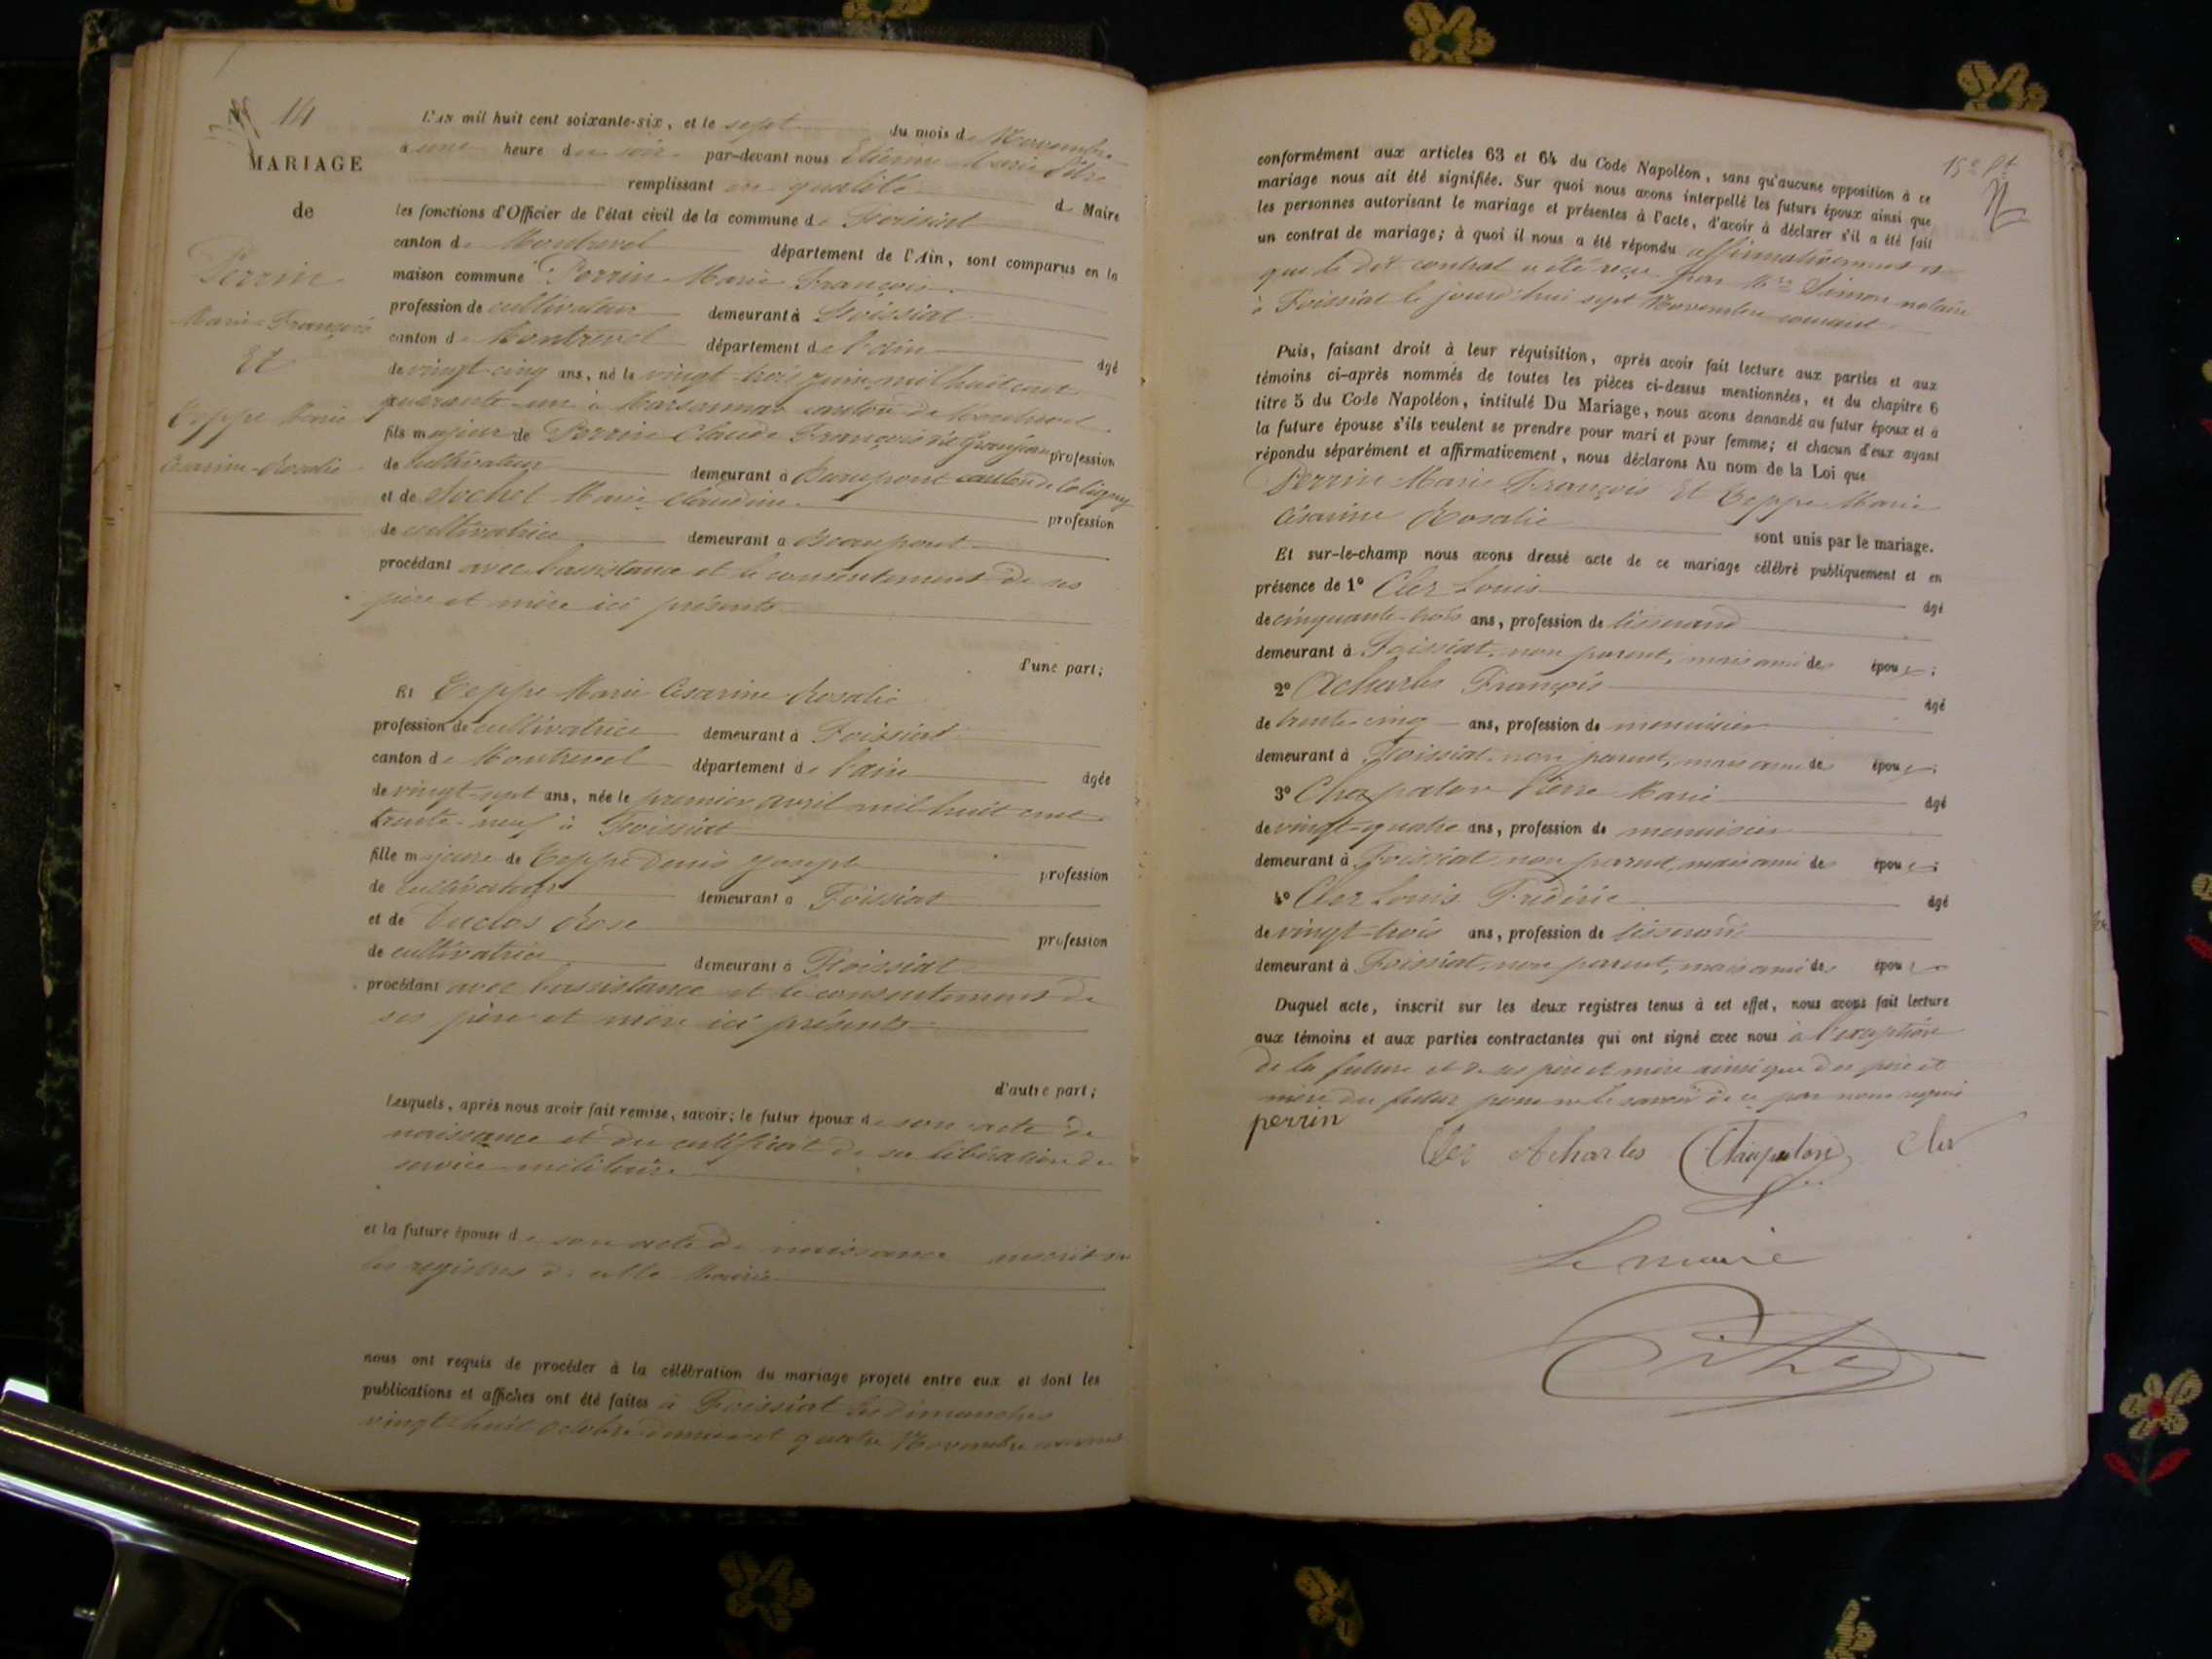 N° 14
MARIAGE
de
Perrin
Marie François
Et
Teppe Marie
Césarine Rosalie
L'AN mil huit cent soixante-six, et le sept du mois de Novembre
à une heure du soir par-devant nous Etienne Marie Pitre
remplissant en qualité de Maire
les fonctions d'Officier de l'état civil de la commune de Foissiat
canton de Montrevel département de l'Ain, sont comparus en la
maison commune Perrin Marie François
profession de cultivateur demeurant à Foissiat
canton de Montrevel département de l'ain âgé
de vingt-cinq ans, né le vingt-trois juin mil huit cent
quarante-un à Marsonnas canton de Montrevel
fils majeur de Perrin Claude François dit Grosjean profession
de cultivateur demeurant à Beaupont canton de Coligny
et de Sochet Marie Claudine profession
de cultivatrice demeurant à Beaupont
procédant avec l'assistance et le consentement de ses
père et mère ici présents
d'une part;
Et Teppe Marie Césarine Rosalie
profession de cultivatrice demeurant à Foissiat
canton de Montrevel département de l'ain âgée
de vingt-sept ans, née le premier avril mil huit cent
trente-neuf à Foissiat
fille majeure de Teppe Denis Joseph profession
de cultivateur demeurant à Foissiat
et de Duclos Rose profession
de cultivatrice demeurant à Foissiat
procédant avec l'assistance et le consentement de
ses père et mère ici présents
d'autre part;
Lesquels, après nous avoir fait remise, savoir; le futur époux de son acte de
naissance et du certificat de sa libération du
service militaire
et la future épouse de son acte de naissance inscrit sur
les registres de cette Mairie
nous ont requis de procéder à la célébration du mariage projeté entre eux et dont les
publications et affiches ont été faites à Foissiat les dimanches
vingt-huit octobre dernier et quatre Novembre courant
conformément aux articles 63 et 64 du Code Napoléon, sans qu'aucune opposition à ce
mariage nous ait été signifiée. Sur quoi nous avons interpellé les futurs époux ainsi que
les personnes autorisant le mariage et présentes à l'acte, d'avoir à déclarer s'il a été fait
un contrat de mariage; à quoi il nous a été répondu affirmativement et
que le dit contrat a été reçu par Me Simon notaire
à Foissiat le jourd'hui sept Novembre courant
Puis, faisant droit à leur réquisition, après avoir fait lecture aux parties et aux
témoins ci-après nommés de toutes les pièces ci-dessus mentionnées, et du chapitre 6
titre 5 du Code Napoléon, intitulé Du Mariage, nous avons demandé au futur époux et à
la future épouse s'ils veulent se prendre pour mari et pour femme; et chacun d'eux ayant
répondu séparément et affirmativement, nous déclarons Au nom de la Loi que
Perrin Marie François Et Teppe Marie
Césarine Rosalie sont unis par le mariage.
Et sur-le-champ nous avons dressé acte de ce mariage célébré publiquement et en
présence de 1° Cler Louis âgé
de cinquante-trois ans, profession de tisserand
demeurant à Foissiat, non parent, mais ami des époux;
2° Acharles François âgé
de trente-cinq ans, profession de menuisier
demeurant à Foissiat non parent, mais ami des époux;
3° Chapalon Pierre Marie âgé
de vingt-quatre ans, profession de menuisier
demeurant à Foissiat non parent, mais ami des époux;
4° Cler Louis Frédéric âgé
de vingt-trois ans, profession de tisserand
demeurant à Foissiat, non parent, mais ami des époux
Duquel acte, inscrit sur les deux registres tenus à cet effet, nous avons fait lecture
aux témoins et aux parties contractantes qui ont signé avec nous à l'exception
de la future et de ses père et mère ainsi que des père et
mère du futur pour ne le savoir de ce par nous requis
perrin
Cler Acharles Chapalon Cler
Le maire
Pitre